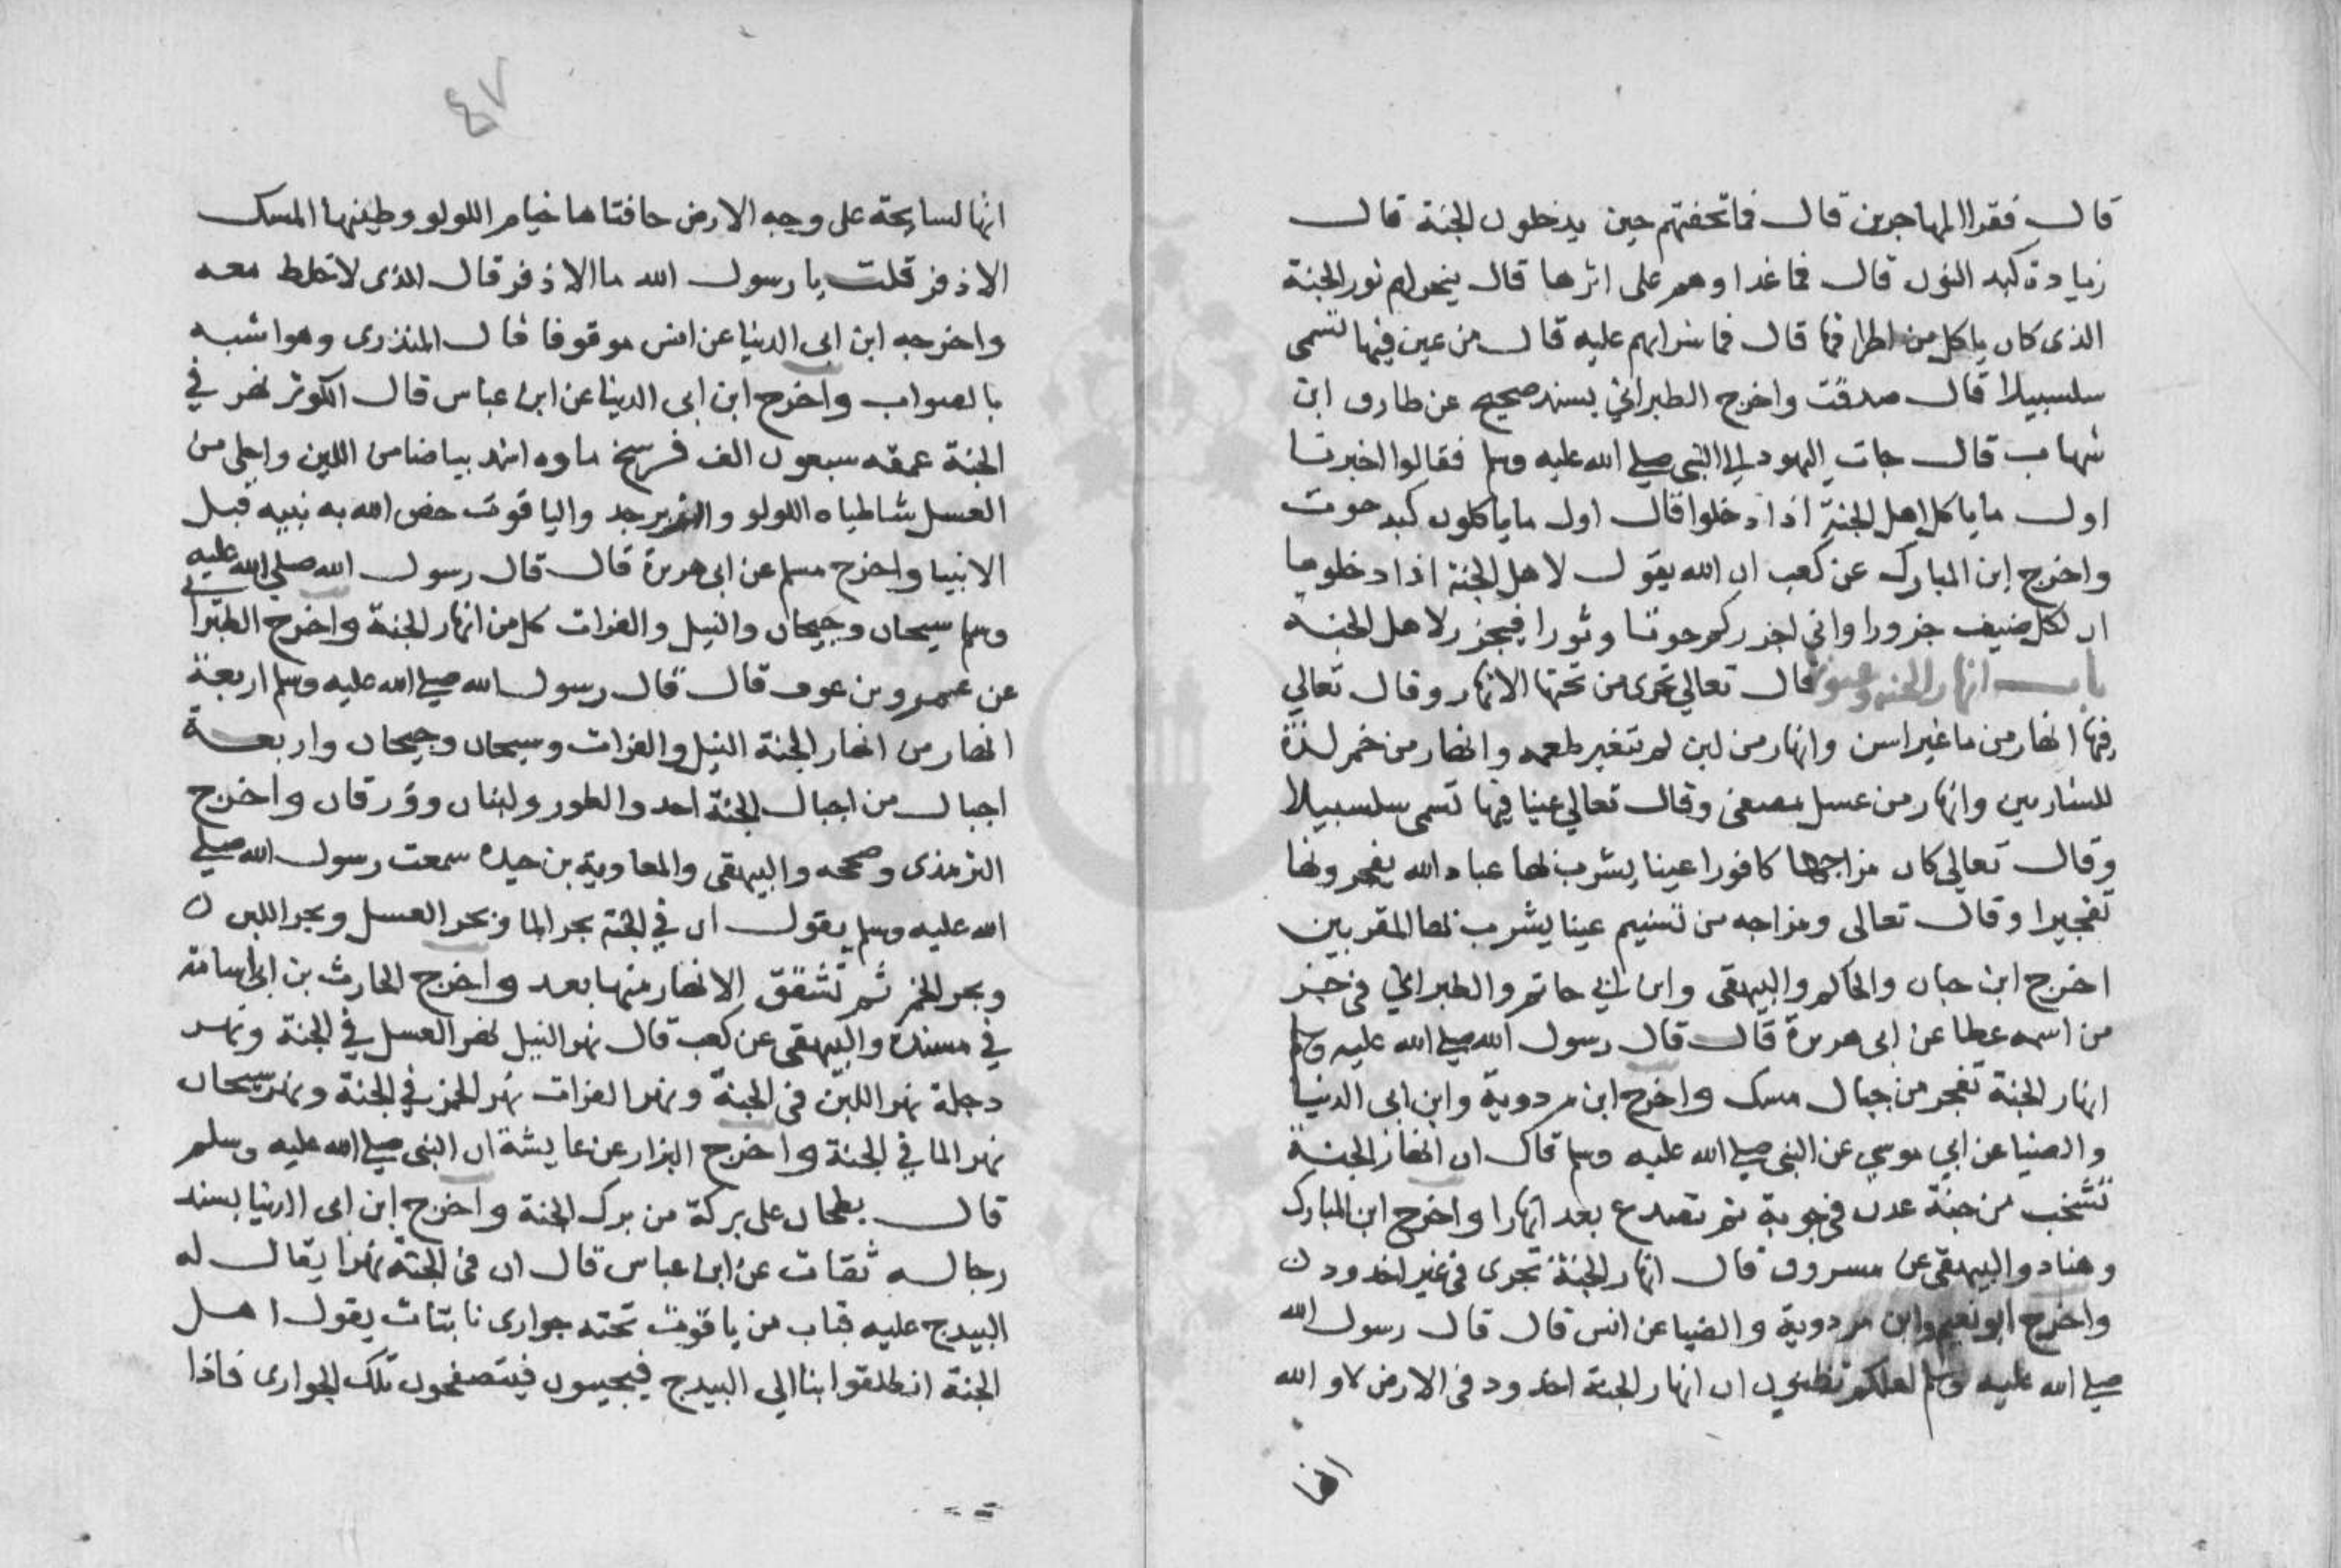 قال فقرا المهاجرين قال فما تحفتهم حين يدخلون الجنة قال
زيادة كبد النون قال فما غداوهم على اثرها قال ينحر لهم ثور الجنة
الذى كان ياكل من اطرافها قال فما شرابهم عليه قال من عين فيها تسمى
سلسبيلا قال صدقت واخرج الطبراني بسند صحيح عن طارق ابن
شهاب قال جات اليهود الى النبي صلى الله عليه وسلم فقالوا اخبرنا
اول ما ياكل اهل الجنة اذا دخلوا قال اول ما ياكلون كبد حوت
واخرج ابن المبارك عن كعب ان الله يقول لاهل الجنة اذا دخلوها
ان لكل ضيف جزورا واني اجزركم حوتا وثورا فيجزر لاهل الجنة
باب انهار الجنة وعيونها قال تعالي تجرى من تحتها الانهار وقال تعالي
فيها انهار من ما غير اسن وانهار من لبن لم تتغير طعمه وانهار من خمر لذة
للشاربين وانهار من عسل مصفى وقال تعالي عينا فيها تسمى سلسبيلا
وقال تعالى كان مزاجها كافورا عينا يشرب بها عباد الله يفجرونها
تفجيرا وقال تعالى ومزاجه من تسنيم عينا يشرب بها المقربين
اخرج ابن حبان والحاكم والبيهقى وابن ابي حاتم والطبراني في خبر
من اسمه عطا عن ابى هريرة قال قال رسول الله صلى الله عليه وسلم
انهار الجنة تفجر من جبال مسك واخرج ابن مردوية وابن ابى الدنيا
والضيا عن ابي موسي عن النبي صلى الله عليه وسلم قال ان انهار الجنة
تشخب من جنة عدن في جوبة ثم تصدع بعد انهارا واخرج ابن المبارك
وهناد والبيهقى عن مسروق قال انهار الجنة تجرى فى غير اخدود ن
واخرج ابو نعيم وابن مردوية والضيا عن انس قال قال رسول الله
صلى الله عليه وسلم لعلكم تظنون ان انهار الجنة اخدود فى الارض لا والله
انها
٤٧
انها لسايحة على وجه الارض حافتاها خيام اللولو وطينها المسك
الاذفر قلت يا رسول الله ما الاذفر قال الذى لا خلط معه
واخرجه ابن ابى الدنيا عن انس موقوفا قال المنذرى وهو اشبه
بالصواب واخرج ابن ابى الدنيا عن ابن عباس قال الكوثر نهر في
الجنة عمقه سبعون الف فرسخ ماوه اشد بياضا من اللبن واحلى من
العسل شاطياه اللولو والزبرجد والياقوت خص الله به نبيه قبل
الانبيا واخرج مسلم عن ابى هريرة قال قال رسول الله صلى الله عليه
وسلم سيحان وجيحان والنيل والفرات كل من انهار الجنة واخرج الطبراني
عن عمرو بن عوف قال قال رسول الله صلى الله عليه وسلم اربعة
انهار من انهار الجنة النيل والفرات وسيحان وجيحان واربعة
اجبال من اجبال الجنة احد والطور ولبنان وورقان واخرج
الترمذى وصححه والبيهقى والمعاوية بن حيده سمعت رسول الله صلى
الله عليه وسلم يقول ان في الجنة بحر الما وبحر العسل وبحر اللبن ن
وبحر الخمر ثم تشقق الانهار منها بعد واخرج الحارث بن ابى اسامة
في مسنده والبيهقى عن كعب قال نهر النيل نهر العسل في الجنة ونهر
دجلة نهر اللبن فى الجنة ونهر الفرات نهر الخمر في الجنة ونهر سيحان
نهر الما في الجنة واخرج البزار عن عايشة ان النبي صلى الله عليه وسلم
قال بطحان على بركة من برك الجنة واخرج ابن ابى الدنيا بسند
رجاله ثقات عن ابن عباس قال ان فى الجنة نهرا يقال له
البيدج عليه قباب من ياقوت تحته جوارى نابتات يقول اهل
الجنة انطلقوا بنا الي البيدج فيجيون فيتصفحون تلك الجوارى فاذا